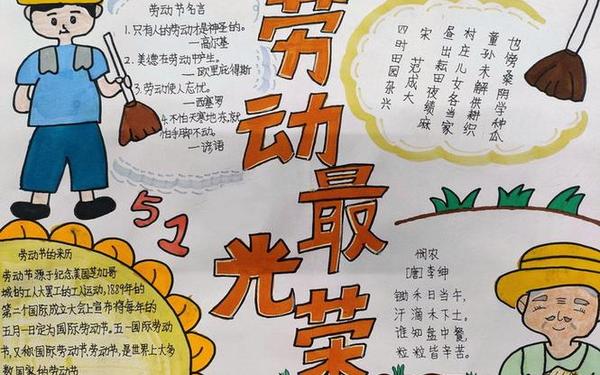 劳动节名言
1.只有人的劳动才是神圣的。
—高尔基
2.美德在劳动中产生。
—欧里庇得斯
3.劳动使人忘忧。
—西塞罗
4.不怕天寒地冻,就
怕手脚不动。
—谚语
劳动最光荣
四时田园杂兴
宋 范成大
昼出耘田夜绩麻
村庄儿女各当家
童孙未解供耕织
也傍桑阴学种瓜
51
劳动节的来历
劳动节源于纪念美国芝加哥
城的工人大罢工的工人运动,1889年的
第二个国际成立大会上宣布将每年的
五月一日定为国际劳动节。五一国际劳动
节,又称国际劳动节劳动节,是世界上大多
数国家的劳动节
悯农
[唐]李绅
锄禾日当午,
汗滴禾下土。
谁知盘中餐,
粒粒皆辛苦。